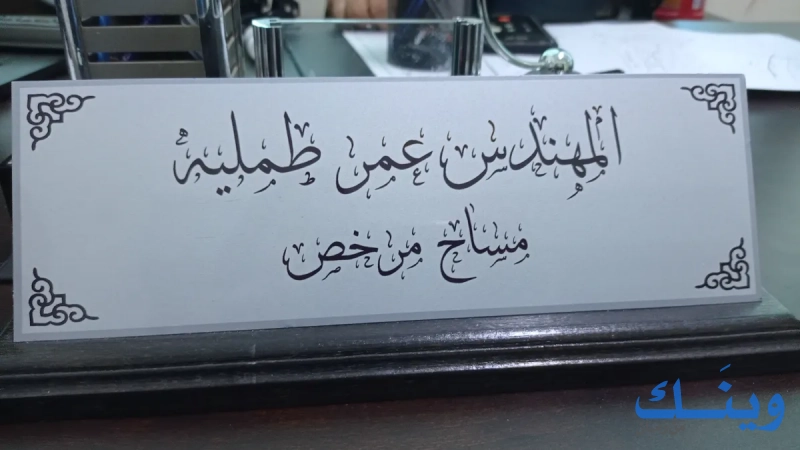 المهندس عمر طمليه
مساح مرخص
وينَك